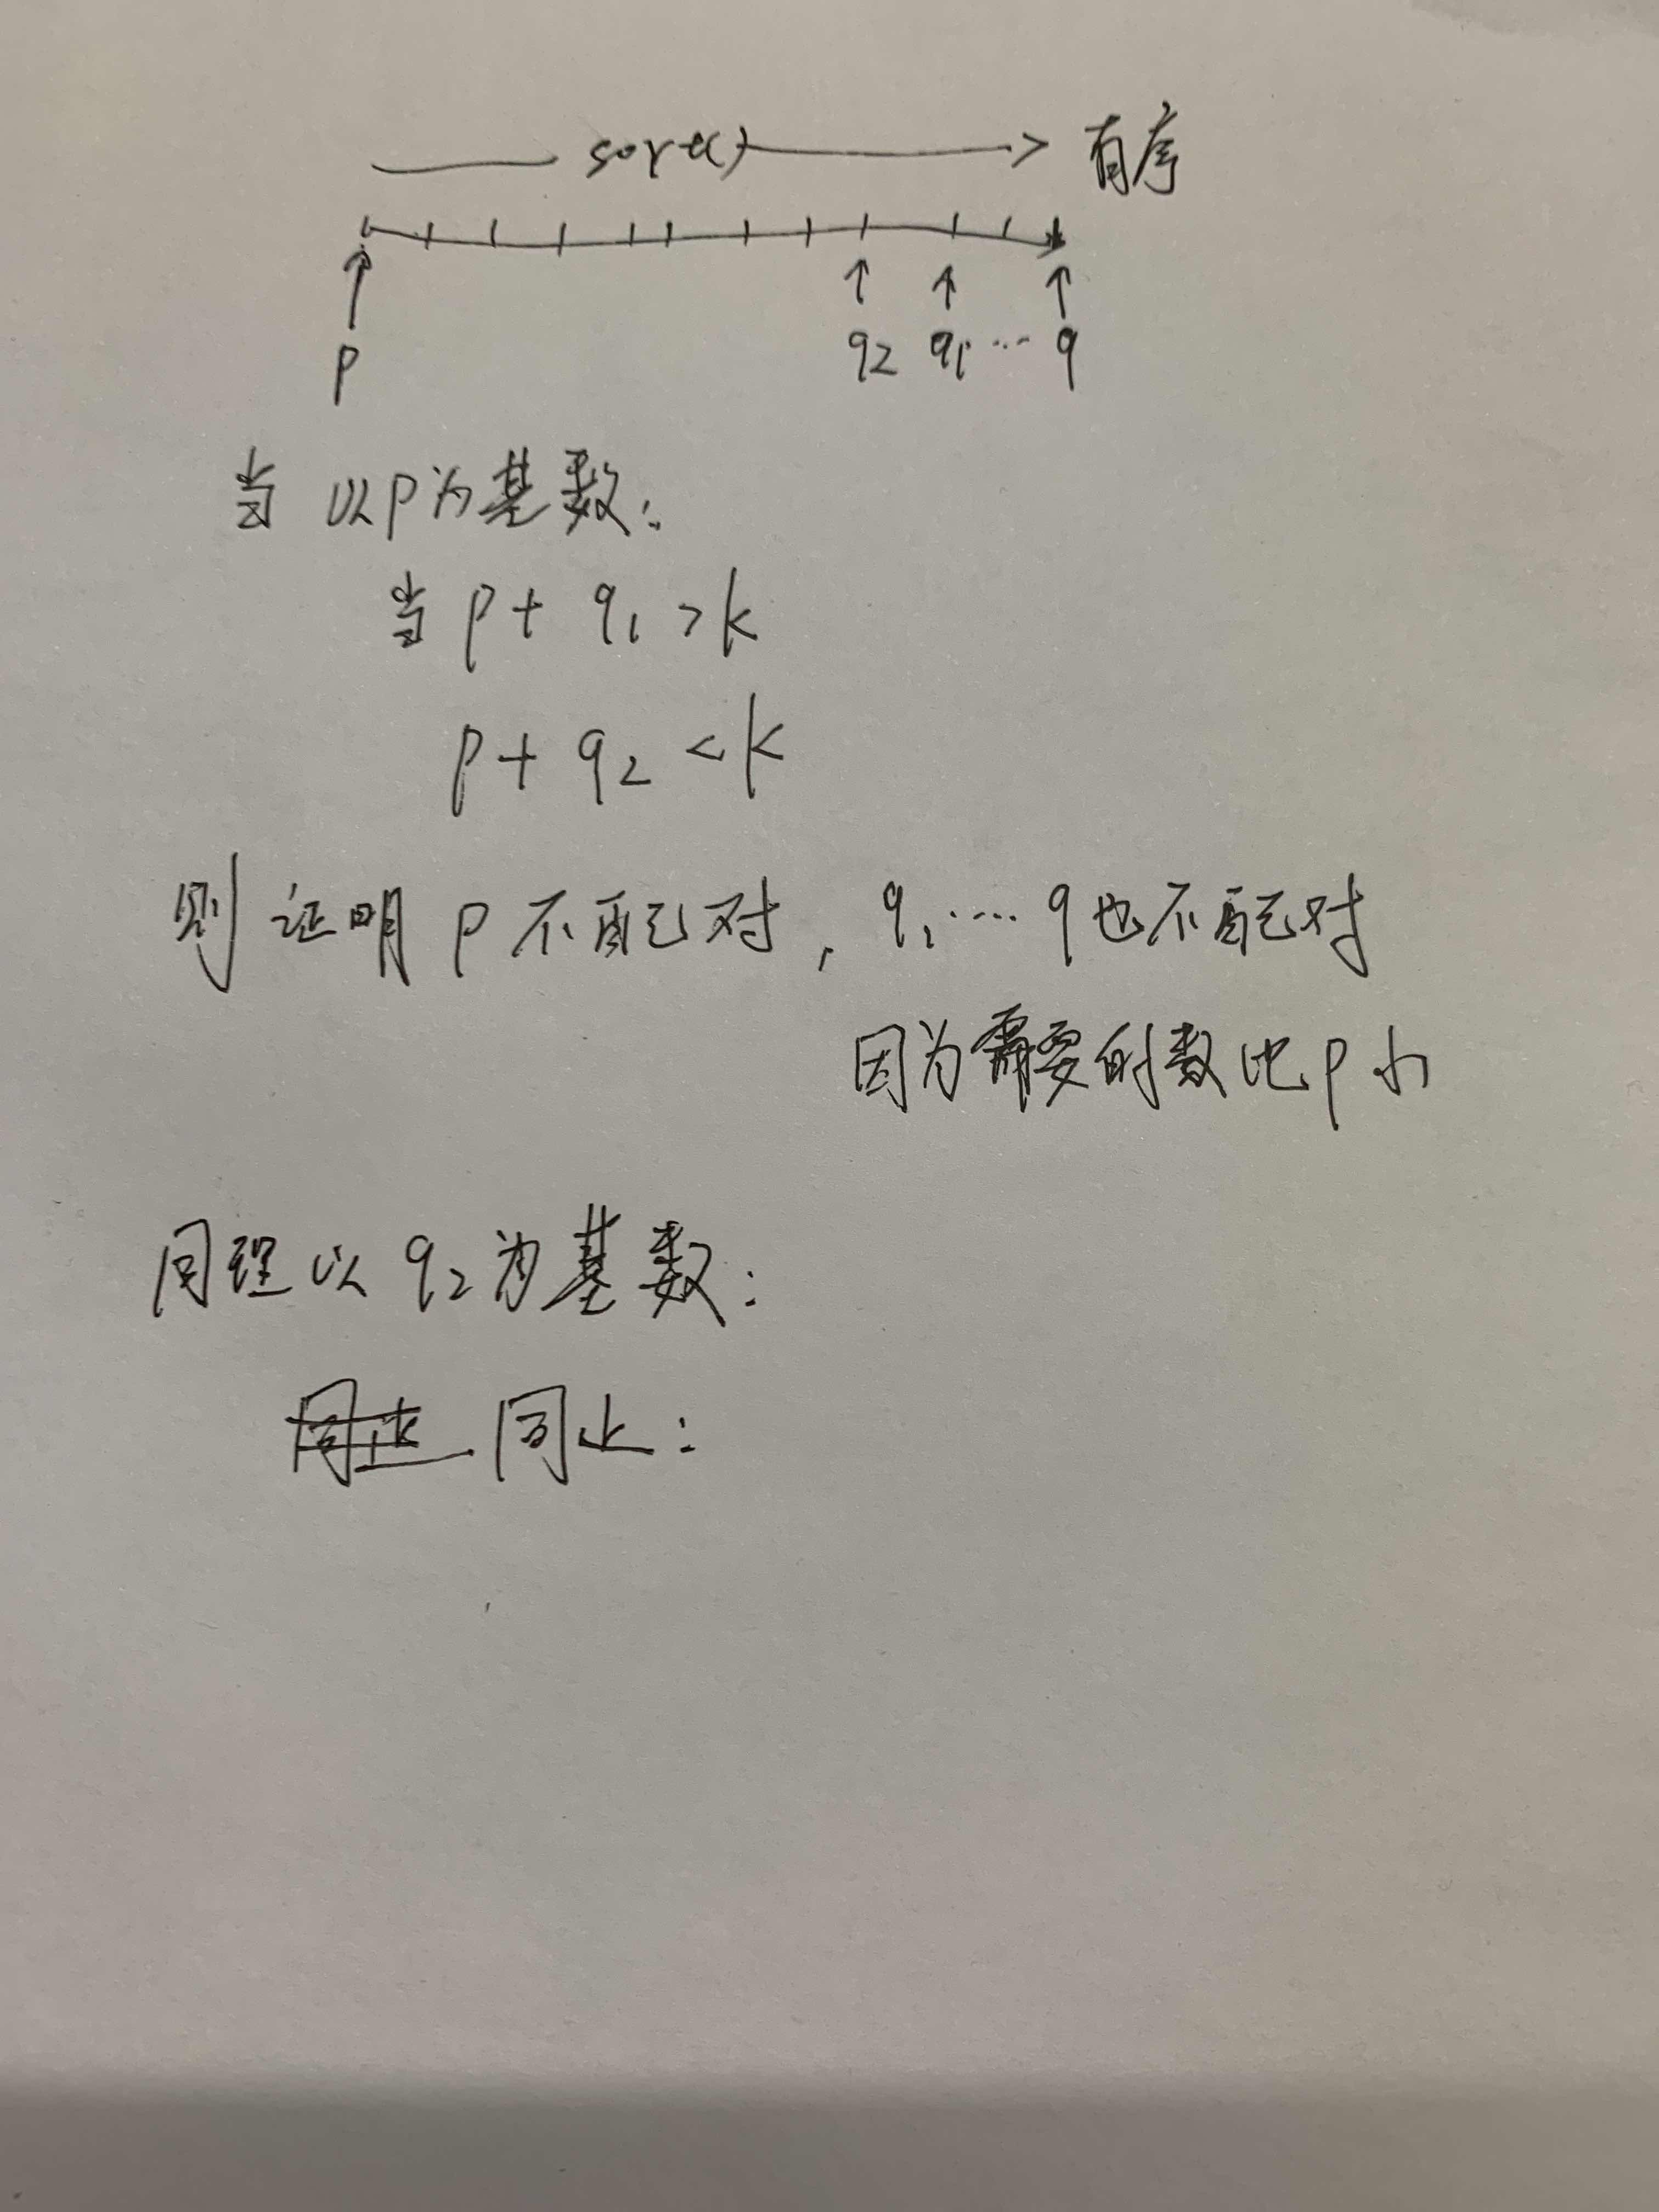 sort() 有序
p q2 q1 ... q
当以p为基数:
当p + q1 > k
p + q2 < k
则证明p不配对, q1 .... q也不配对
因为需要的数比p小
同理以q2为基数:
同止: